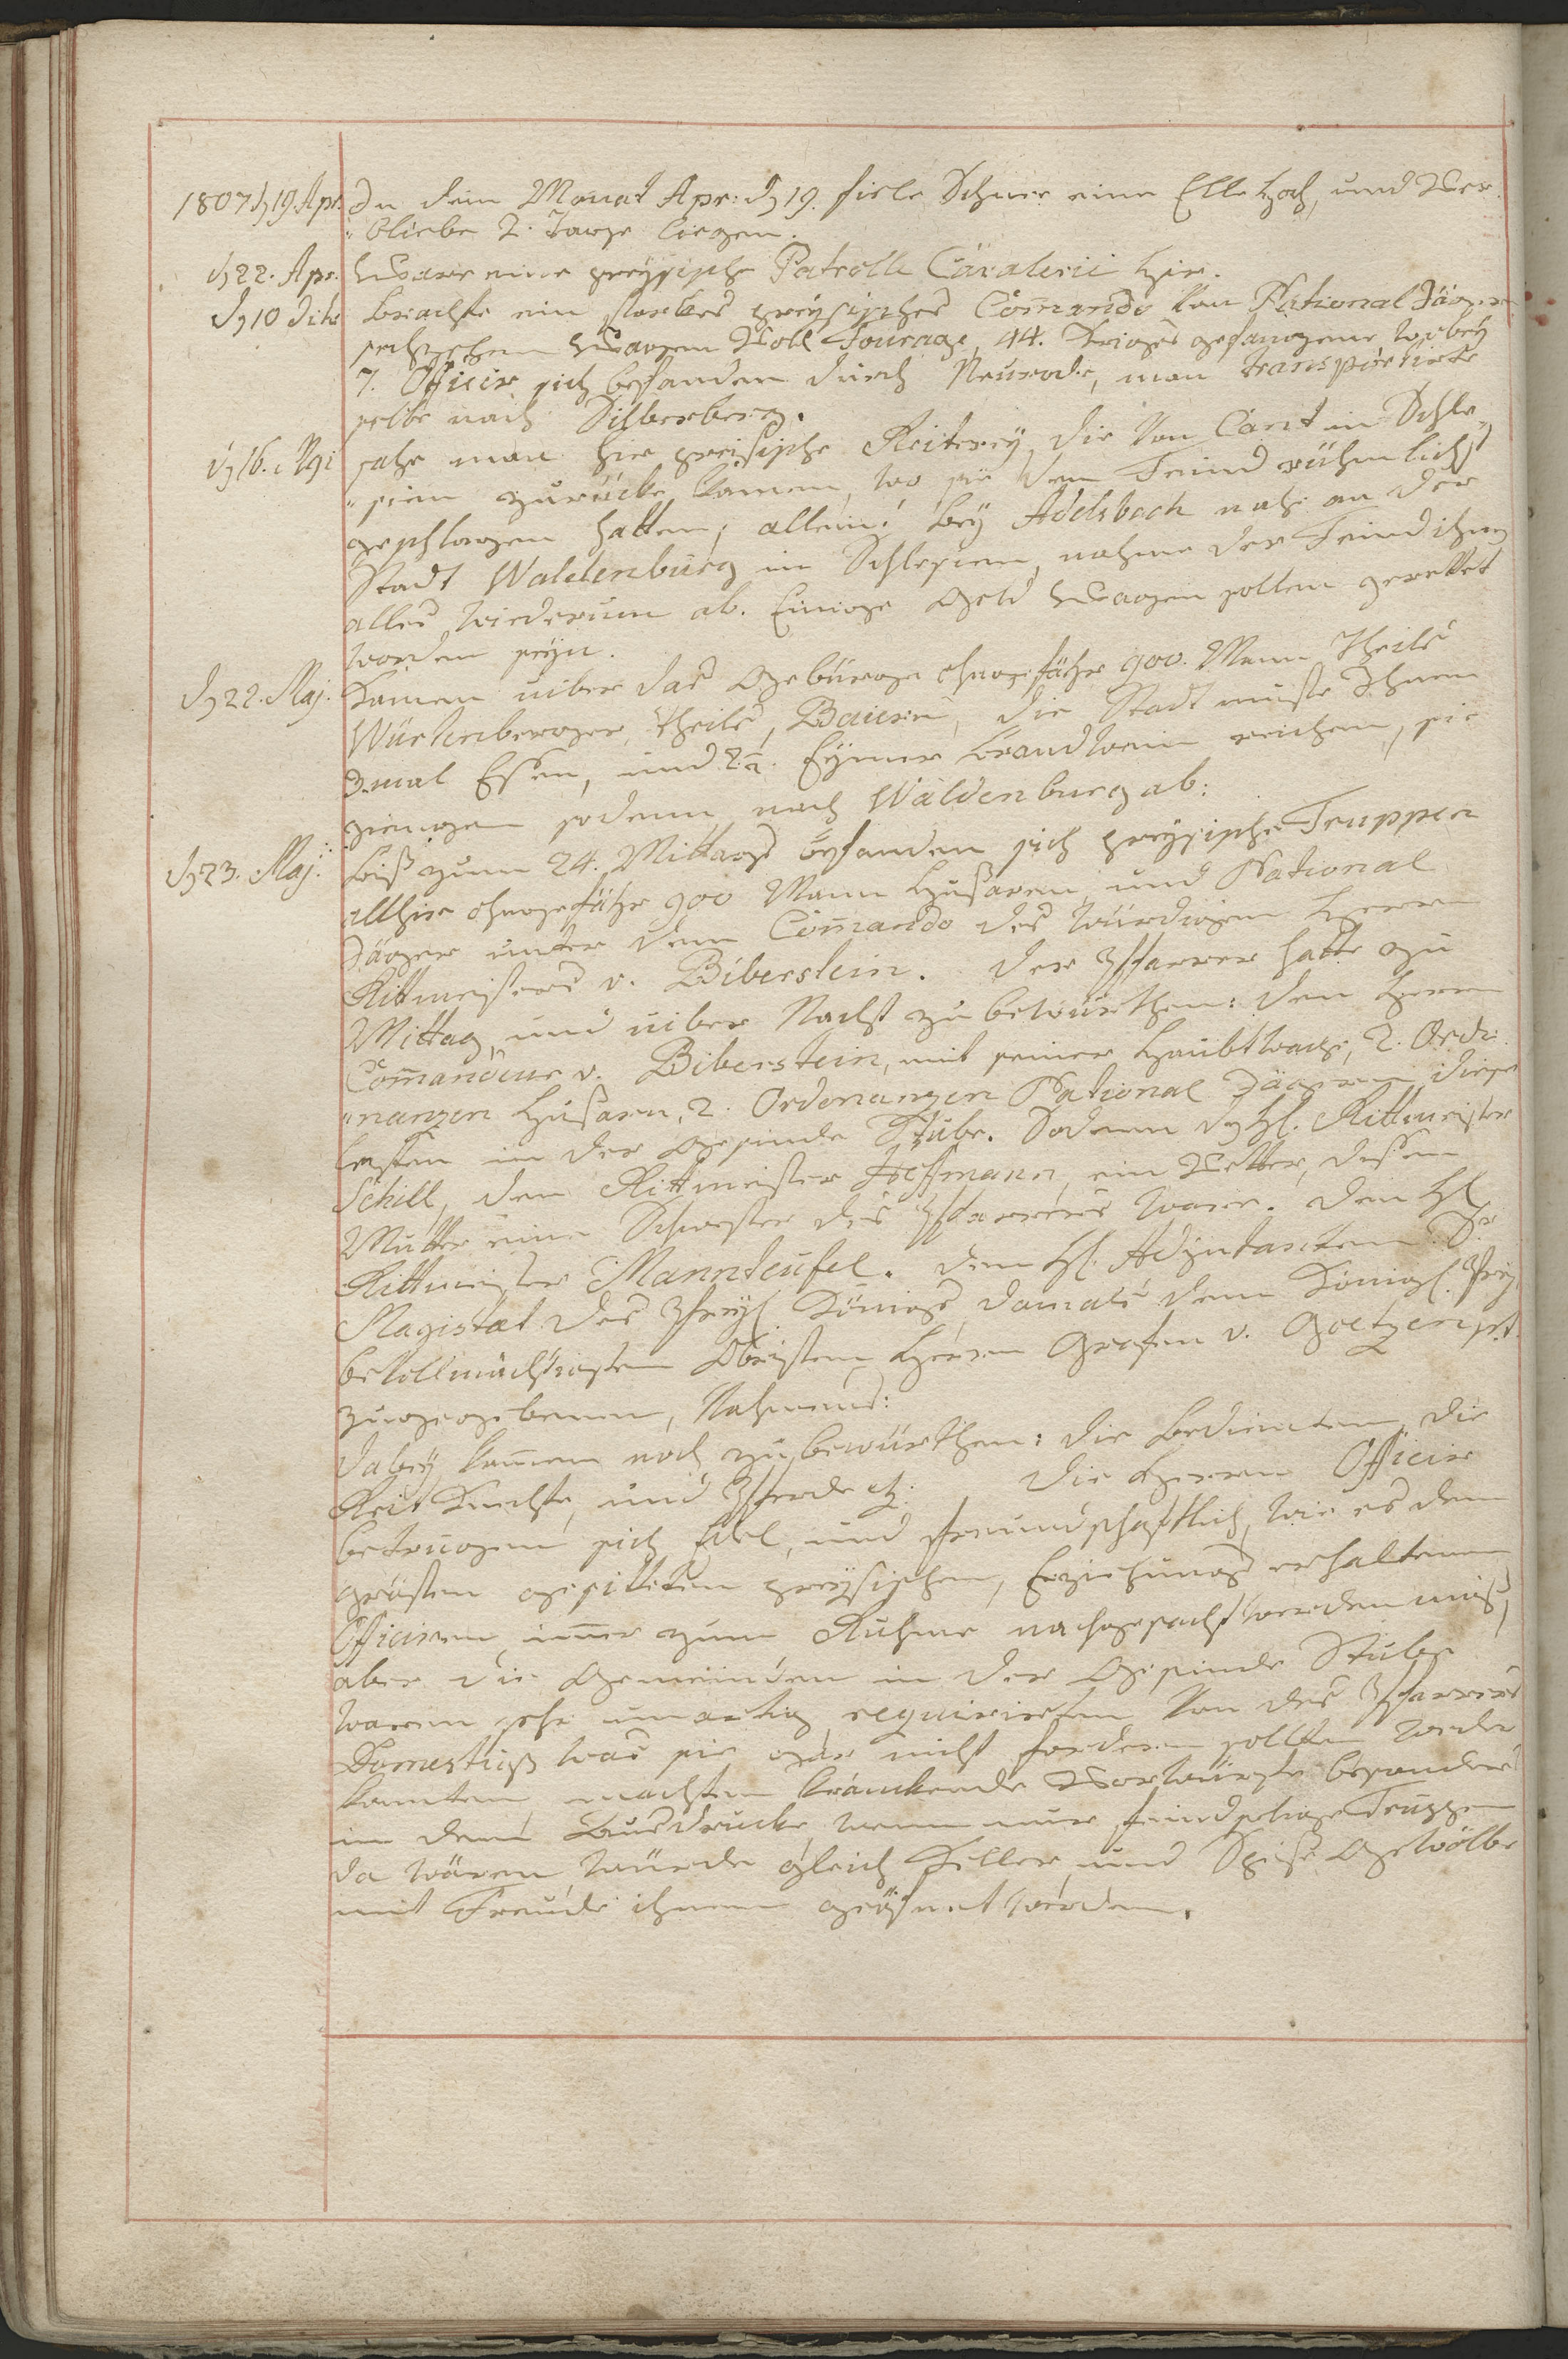 1807 d 19 Apr. In dem Monat Apr: d 19. fiele Schnee eine Elle hoch, und Ver„
„bliebe 2. Tage liegen.
d 22. Apr. Ware eine preysische Patrolle Cavalerii hier.
d 10 dito brachte ein starkes preysisches Com̅ando von National Jägern
sechzehen Wagen Voll Fourage, 44. Kriegs gefangene wobey
7. Officir sich befanden durch Neurode, man transportirte
selbe nach Silberberg.
d 16. Maj sahe man hier preisische Reiterey, die von Cant in Schle„
„sien zurücke kamen, wo sie den Feind rühmlichst
geschlagen hatten; allein! bey Adelsbach nahe an der
Stadt Waldenburg in Schlesien, nahme der Feind ihnen
alles wiederum ab. Einige Geld Wagen sollen gerettet
worden seyn.
d 22. Maj. Kamen uiber das Gebürge ohngefähr 900. Mann Theils
Würtenberger, theils, Baiern, die Stadt muste Ihnen
3.mal Essen, und Eymer Brandtwein reichen, sie
giengen sodenn nach Waldenburg ab:
d 23. Maj: biß zum 24. Mittags befanden sich preysische Truppen
allhier ohngefähr 900 Mann Hußaren, und National
Jäger unter dem Com̅ando des würdigen Herrn
Rittmeisters v. Biberstein. Der Pfarrer hatte zu
Mittag, und uiber Nacht zu bewürthen: den Herrn
Com̅andeur v. Biberstein, mit seiner Haubtwache, 2. Ordo„
„nanzen Hußarn, 2. Ordonanzen National Jägern, diese
letzten in der Gesinde Stube. Sodenn d H. Rittmeister
Schill, den Rittmeister Hoffmann, ein Vetter, dessen
Mutter eine Schwester des Pfarrers ware. Den H.
Rittmeister Mannteufel. Den H. Adjutanten Sr
Magistaet des Preyß. Königs, damals dem Königl. Prß.
bevollmächtigsten Obristen Herrn Grafen v. Goetzen
zugegebenen, Nahmens:
Dabey kamen noch zu bewürthen: die Bedienten, die
Reit Knechte, und Pferde etz: Die Herrn Officir
betrugen sich Edel, und freundschaftlich, wie es dem
grösten gesitteten preysischen, Erziehungs erhaltenen
Officiren immer zum Ruhme nachgesacht werden muß,
aber die Gemeinden in der Gesinde Stube
waren sehr unartig, requirirten von des Pfarrers
Domestiq was sie gar nicht fordern sollten weder
konnten, machten kränkende Vorwürfe besonders
in dem Ausdrucke wenn nur feindselige Truppen
da wären, würde gleich Keller, und Speise Gewölbe
mit Freude ihnen geöfnet werden.